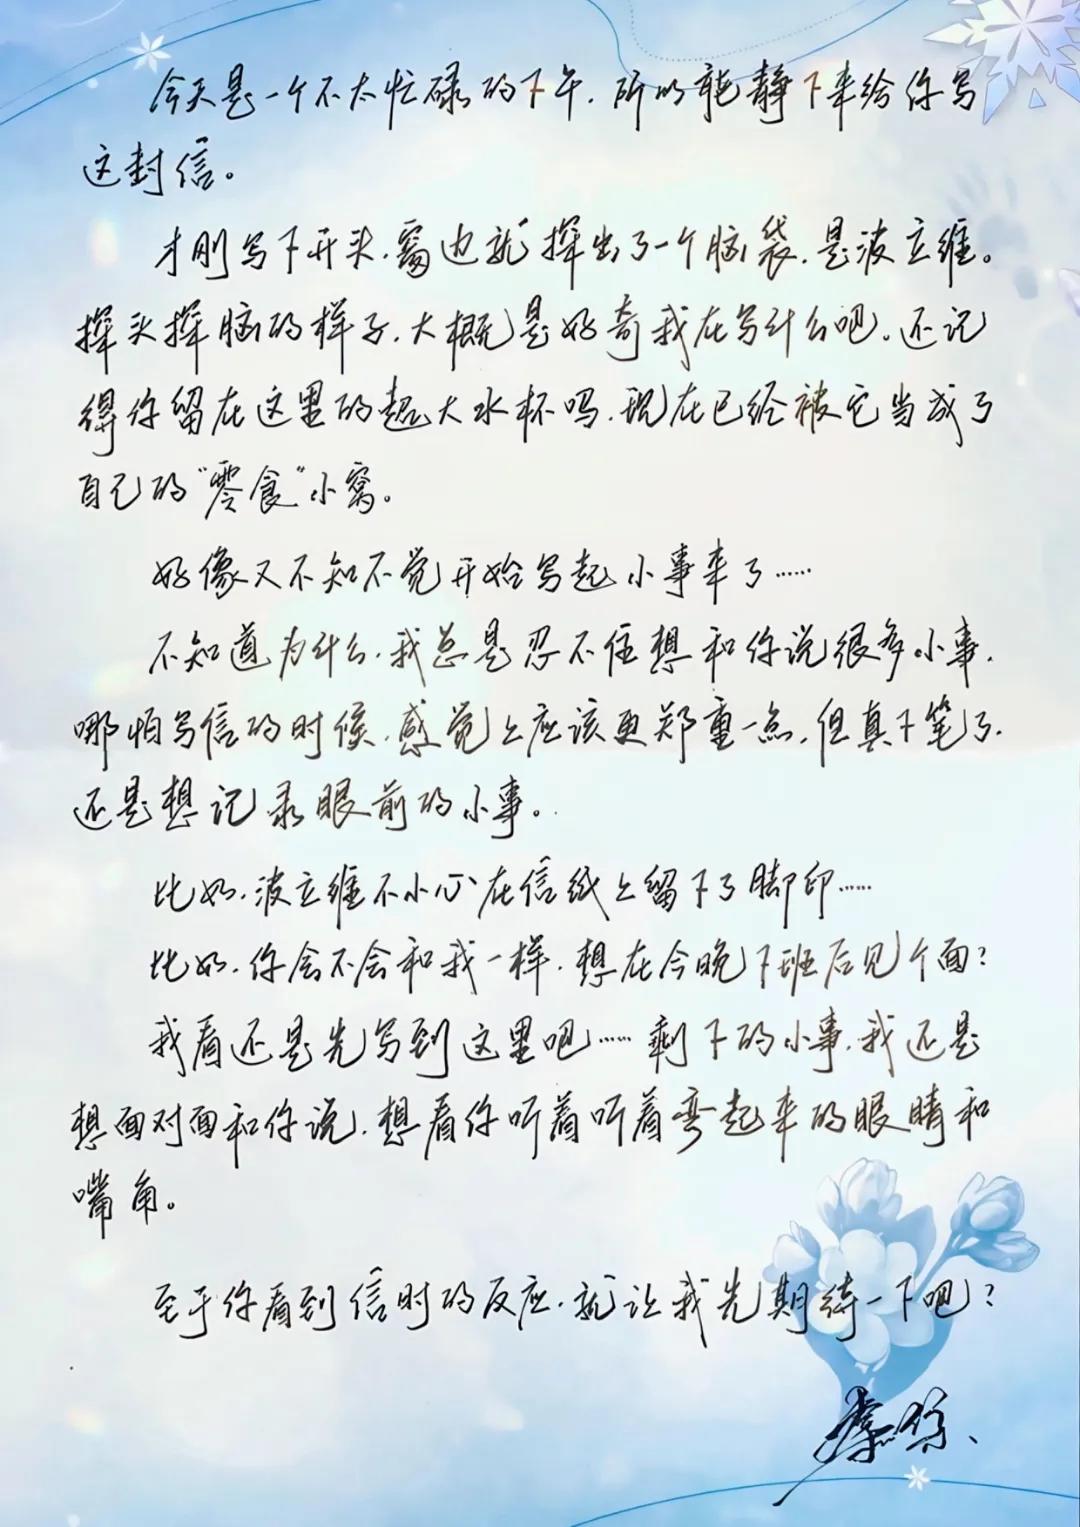 今天是一个不太忙碌的下午，所以能静下来给你写
这封信。
才刚写下开头，窗边就探出了一个脑袋，是波立维。
探头探脑的样子，大概是好奇我在写什么吧。还记
得你留在这里的超大水杯吗，现在已经被它当成了
自己的“零食”小窝。
好像又不知不觉开始写起小事来了……
不知道为什么，我总是忍不住想和你说很多小事，
哪怕写信的时候，感觉上应该更郑重一点，但真下笔了，
还是想记录眼前的小事。
比如，波立维不小心在信纸上留下了脚印……
比如，你会不会和我一样，想在今晚下班后见个面？
我看还是先写到这里吧……剩下的小事，我还是
想面对面和你说，想看你听着听着弯起来的眼睛和
嘴角。
至于你看到信时的反应，就让我先期待一下吧？